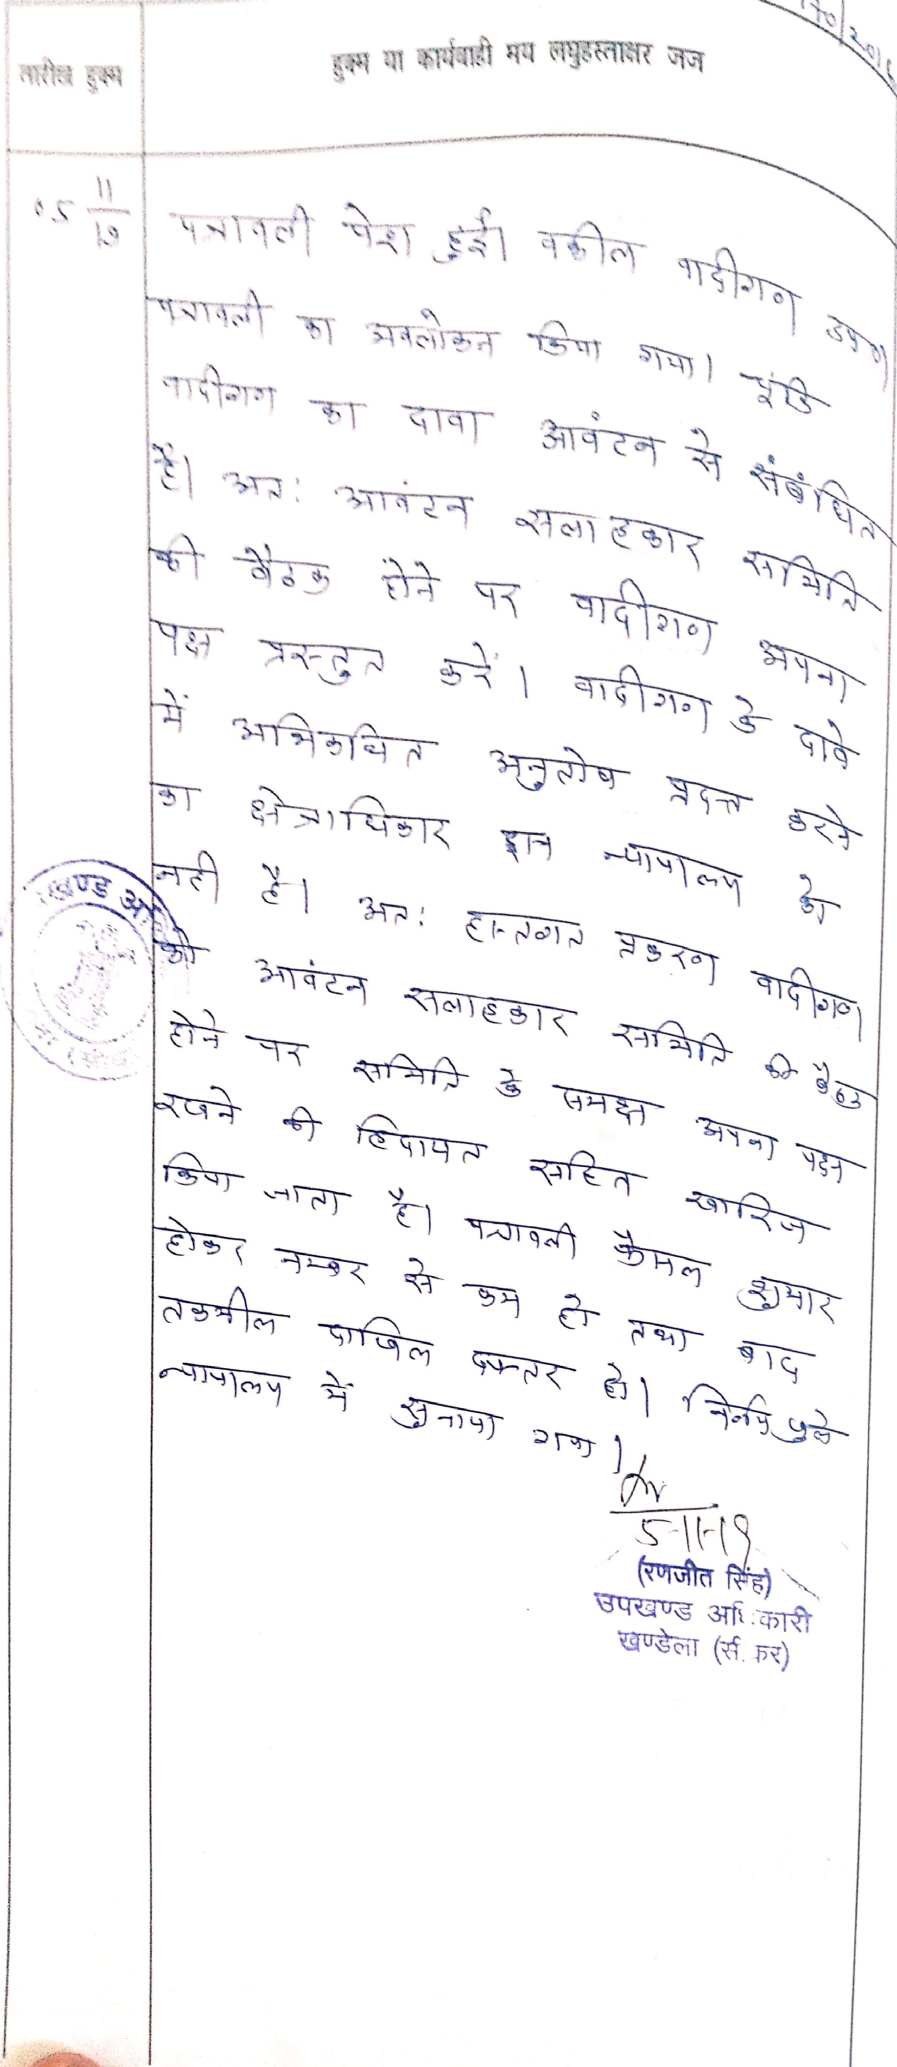 170/201
तारीख हुक्म
हुक्म या कार्यवाही मय लघुहस्ताक्षर जज
05 11/19
पत्रावली पेश हुई। वकील वादीगण उप०
पत्रावली का अवलोकन किया गया। चूंकि
वादीगण का दावा आवंटन से संबंधित
है। अतः आवंटन सलाहकार समिति
की बैठक होने पर वादीगण अपना
पक्ष प्रस्तुत करें। वादीगण के दावे
में अभिकथित अनुतोष प्रदत्त करने
का क्षेत्राधिकार इस न्यायालय को
नही है। अतः हस्तगत प्रकरण वादीगण
को आवंटन सलाहकार समिति की बैठक
होने पर समिति के समक्ष अपना पक्ष
रखने की हिदायत सहित खारिज
किया जाता है। पत्रावली फैसल शुमार
होकर नम्बर से कम हो तथा बाद
तकमील दाखिल दफ्तर हो। निर्णय खुले
न्यायालय में सुनाया गया।
5-11-19
(रणजीत सिंह)
उपखण्ड अधिकारी
खण्डेला (सीकर)